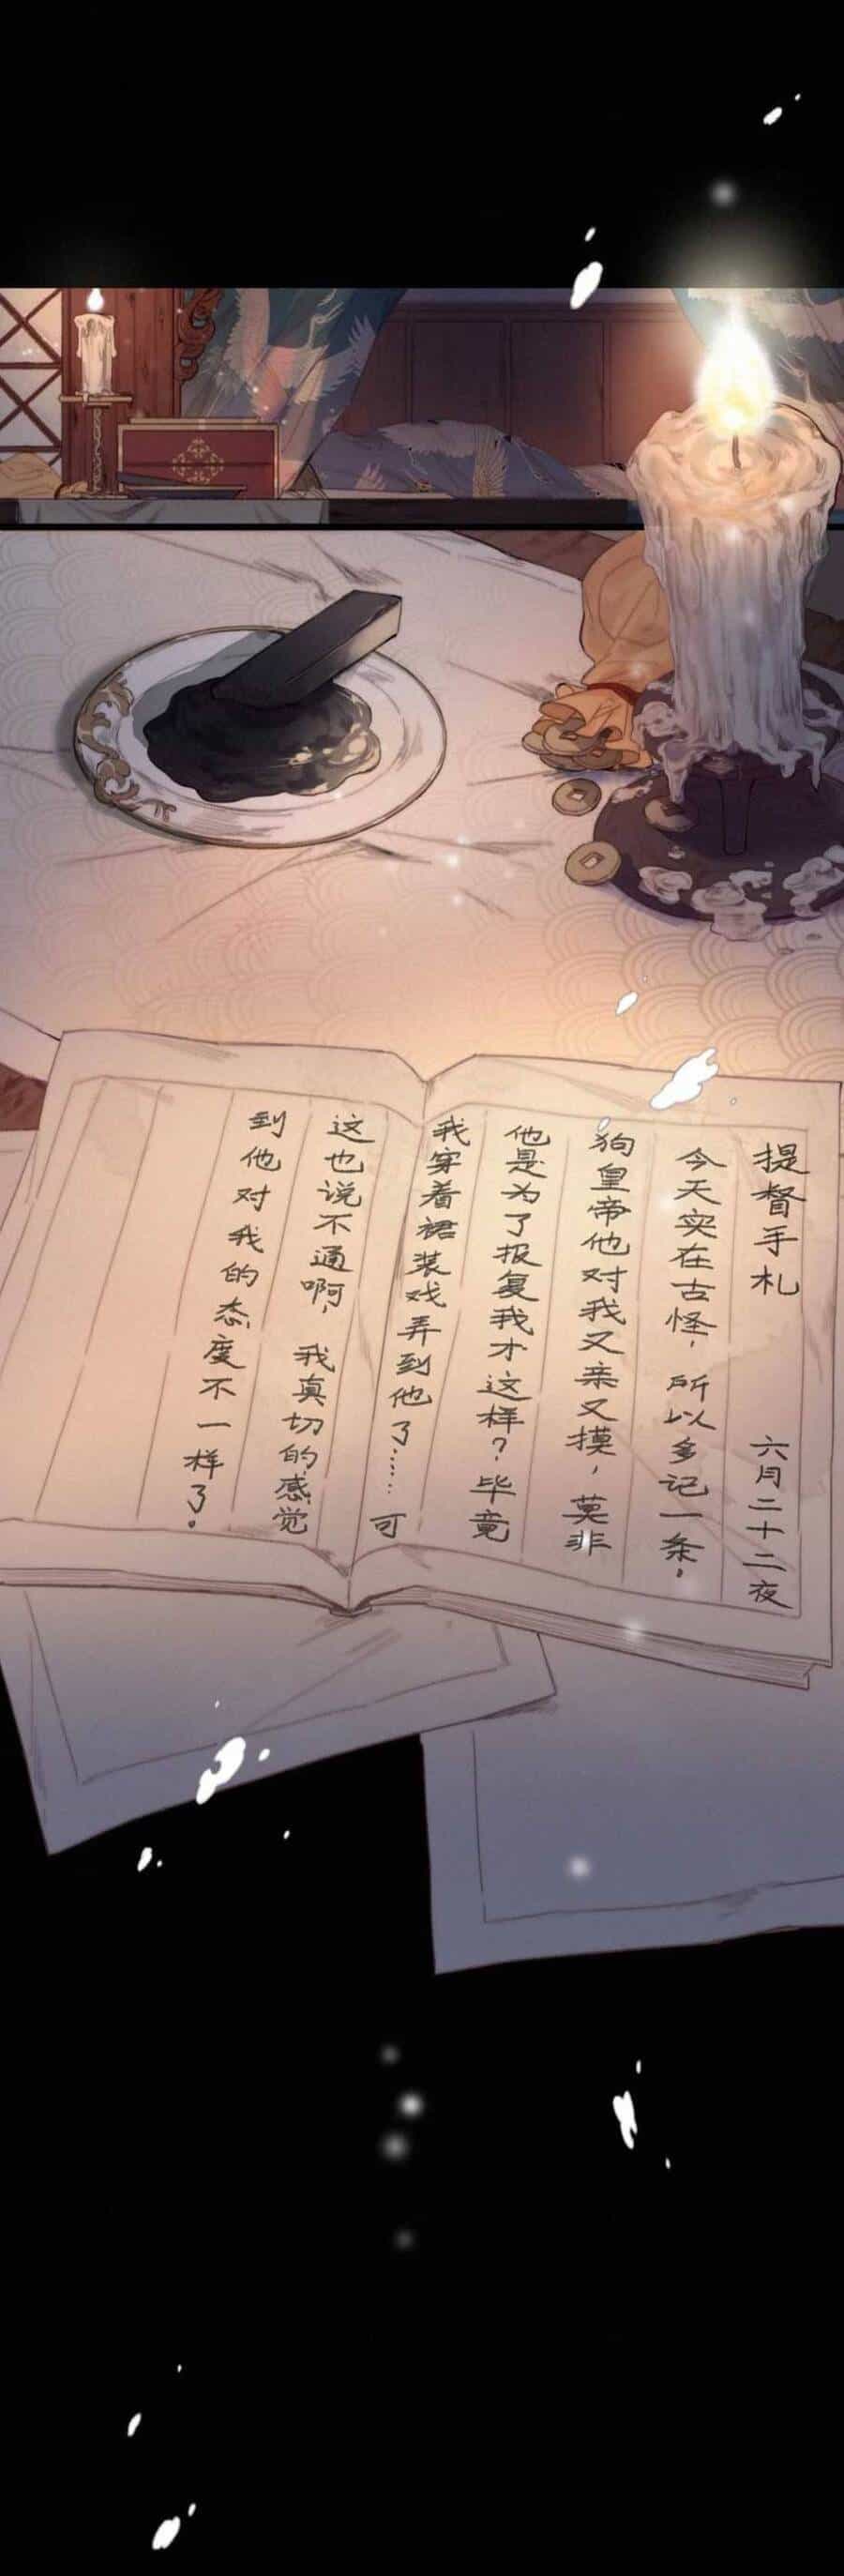 提督手札 六月二十二夜
今天实在古怪，所以多记一条。
狗皇帝他对我又亲又摸，莫非
他是为了报复我才这样？毕竟
我穿着裙装戏弄到他了……可
这也说不通啊，我真切的感觉
到他对我的态度不一样了。